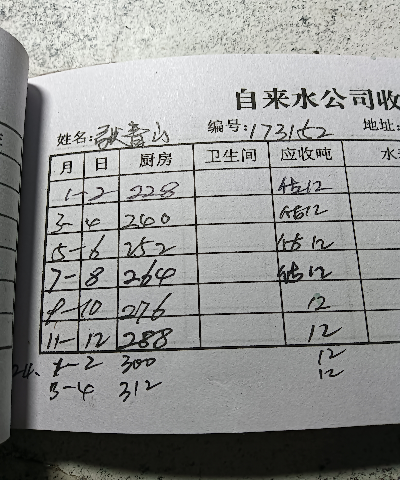 自来水公司收
姓名: 山 编号: 173152 地址:
月 日 厨房 卫生间 应收吨 水
1-2 228 估12
3-4 240 估12
5-6 252 估12
7-8 264 估12
9-10 276 12
11-12 288 12
24. 1-2 300 12
3-4 312 12